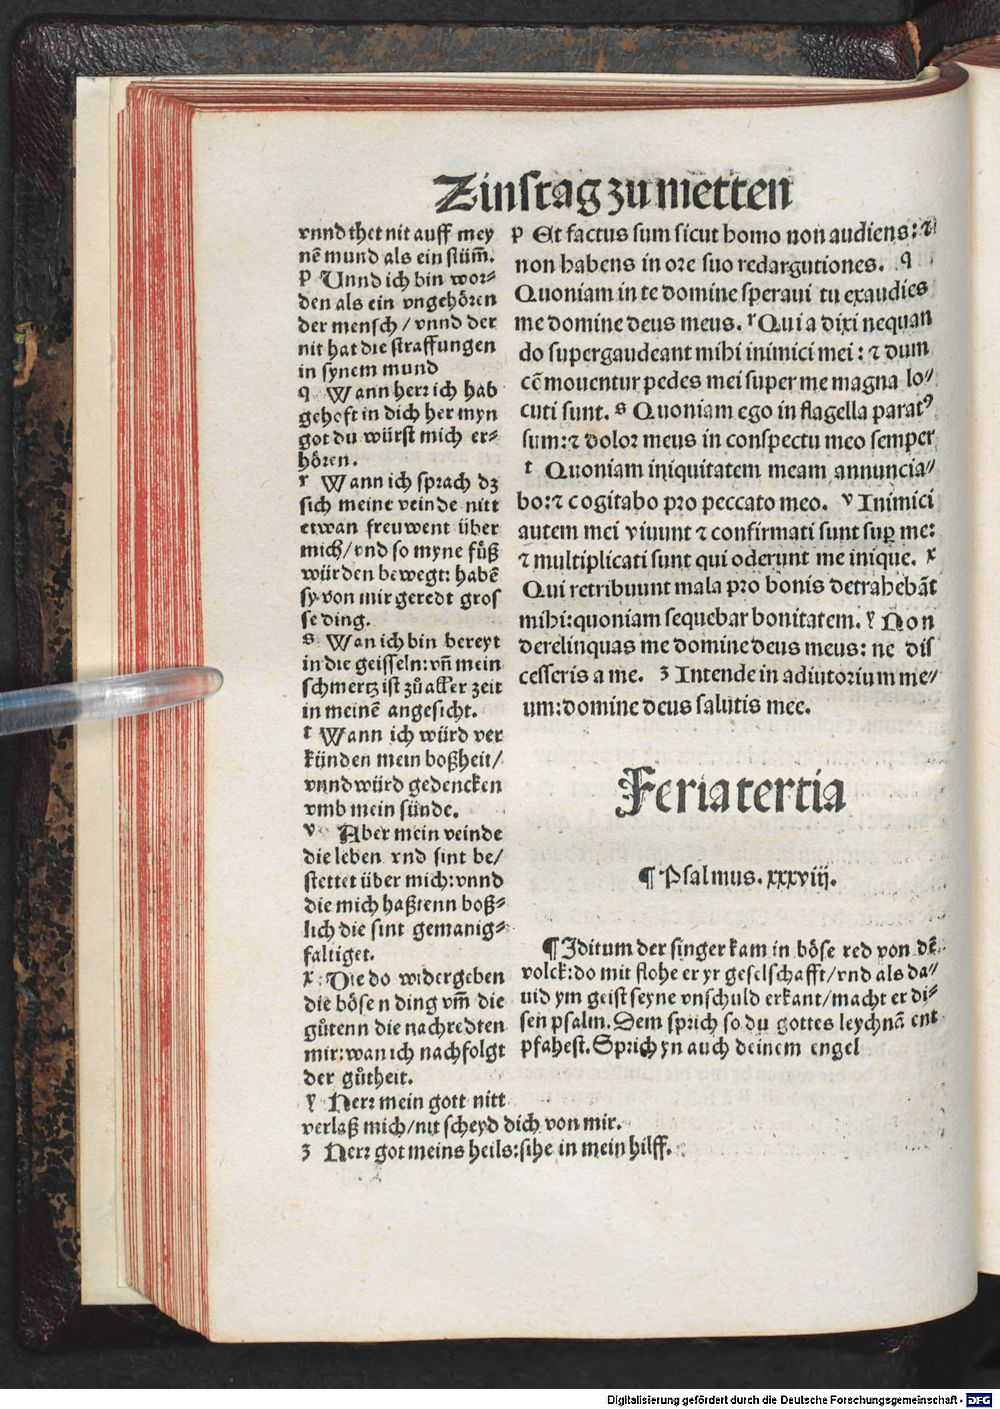 Zinstag zu metten
vnnd thet nit auff mey
nē mund als ein stūm̄.
p Unnd ich bin wor⸗
den als ein vngehören
der mensch / vnnd der
nit hat die straffungen
in synem mund
q Wann herr ich hab
gehoft in dich her myn
got du würst mich er⸗
hören.
r Wann ich sprach dz
sich meine veinde nitt
etwan freuwent über
mich/vnd so myne fůß
würden bewegt: habē
sy von mir geredt gros
se ding.
s Wan ich bin bereyt
in die geisseln: vn̄ mein
schmertz ist zů aller zeit
in meinē angesicht.
t Wann ich würd ver
künden mein boßheit/
vnnd würd gedencken
vmb mein sünde.
v Aber mein veinde
die leben vnd sint be/
stettet über mich: vnnd
die mich haßtenn boß⸗
lich die sint gemanig⸗
faltiget.
x Die do widergeben
die bösen ding vm̄ die
gůtenn die nachredten
mir: wan ich nachfolgt
der gůtheit.
y Herr mein gott nitt
verlaß mich/nit scheyd dich von mir.
z Herr got meins heils: sihe in mein hilff.
p Et factus sum sicut homo non audiens: ⁊
non habens in ore suo redargutiones. q
Quoniam in te domine speraui tu exaudies
me domine deus meus. r Quia dixi nequan
do supergaudeant mihi inimici mei: ⁊ dum
cōmouentur pedes mei super me magna lo⸗
cuti sunt. s Quoniam ego in flagella paratꝰ
sum: ⁊ dolor meus in conspectu meo semper
t Quoniam iniquitatem meam annuncia⸗
bo: ⁊ cogitabo pro peccato meo. v Inimici
autem mei viuunt ⁊ confirmati sunt suꝑ me:
⁊ multiplicati sunt qui oderunt me inique. x
Qui retribuunt mala pro bonis detrahebāt
mihi: quoniam sequebar bonitatem. y Non
derelinquas me domine deus meus: ne dis
cesseris a me. z Intende in adiutorium me⸗
um: domine deus salutis mee.
Feria tertia
¶ Psalmus. xxxviij.
¶ Iditum der singer kam in böse red von dē
volck: do mit flohe er yr geselschafft/vnd als da⸗
uid ym geist seyne vnschuld erkant/macht er di⸗
sen psalm. Dem sprich so du gottes leychnā ent
pfahest. Sprich yn auch deinem engel
Digitalisierung gefördert durch die Deutsche Forschungsgemeinschaft - DFG